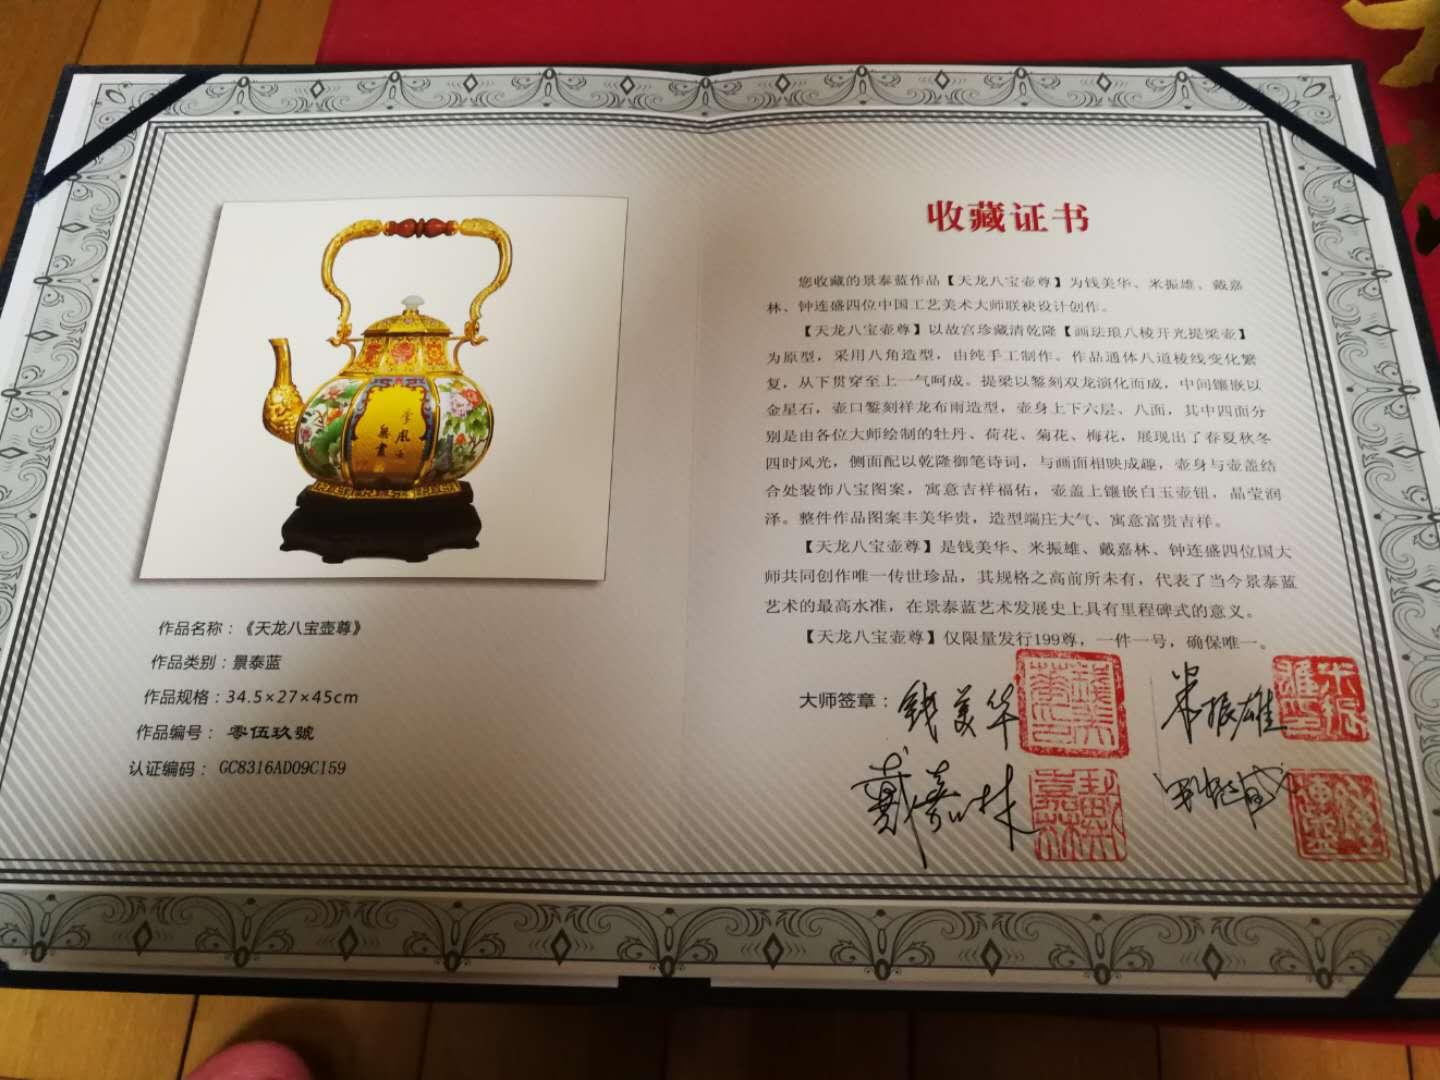 作品名称：《天龙八宝壶尊》
作品类别：景泰蓝
作品规格：34.5×27×45cm
作品编号： 零伍玖號
认证编码： GC8316AD09C159
收藏证书
您收藏的景泰蓝作品【天龙八宝壶尊】为钱美华、米振雄、戴嘉
林、钟连盛四位中国工艺美术大师联袂设计创作。
【天龙八宝壶尊】以故宫珍藏清乾隆【画珐琅八棱开光提梁壶】
为原型，采用八角造型，由纯手工制作。作品通体八道棱线变化繁
复，从下贯穿至上一气呵成。提梁以錾刻双龙演化而成，中间镶嵌以
金星石，壶口錾刻祥龙布雨造型，壶身上下六层、八面，其中四面分
别是由各位大师绘制的牡丹、荷花、菊花、梅花，展现出了春夏秋冬
四时风光，侧面配以乾隆御笔诗词，与画面相映成趣，壶身与壶盖结
合处装饰八宝图案，寓意吉祥福佑，壶盖上镶嵌白玉壶钮，晶莹润
泽。整件作品图案丰美华贵，造型端庄大气、寓意富贵吉祥。
【天龙八宝壶尊】是钱美华、米振雄、戴嘉林、钟连盛四位国大
师共同创作唯一传世珍品，其规格之高前所未有，代表了当今景泰蓝
艺术的最高水准，在景泰蓝艺术发展史上具有里程碑式的意义。
【天龙八宝壶尊】仅限量发行199尊，一件一号，确保唯一。
大师签章：钱美华 米振雄
戴嘉林